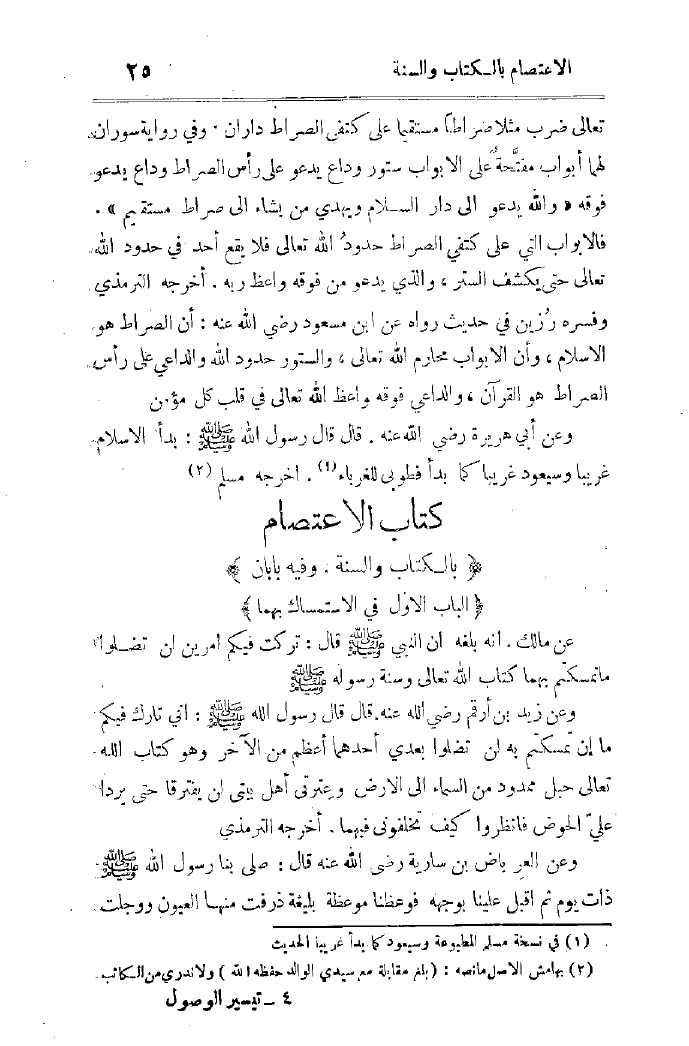 الاعتصام بالكتاب والسنة ٢٥
تعالى ضرب مثلا صراطاً مستقيما على كنفى الصراط داران . وفي رواية سوران
لهما أبواب مفتَّحةٌ على الابواب ستور وداع يدعو على رأس الصراط وداع يدعو
فوقه « والله يدعو الى دار السلام ويهدي من يشاء الى صراط مستقيم » .
فالابواب التي على كتفي الصراط حدودُ الله تعالى فلا يقع أحد في حدود الله
تعالى حتى يكشف الستر ، والذي يدعو من فوقه واعظ ربه . أخرجه الترمذي
وفسره رُزين في حديث رواه عن ابن مسعود رضي الله عنه : أن الصراط هو
الاسلام ، وأن الابواب محارم الله تعالى ، والستور حدود الله والداعي على رأس
الصراط هو القرآن ، والداعي فوقه واعظ الله تعالى في قلب كل مؤمن
وعن أبي هريرة رضي الله عنه . قال قال رسول الله ﷺ : بدأ الاسلام
غريبا وسيعود غريبا كما بدأ فطوبى للغرباء (١) . اخرجه مسلم (٢)
كتاب الاعتصام
﴿ بالكتاب والسنة . وفيه بابان ﴾
﴿ الباب الاوّل في الاستمساك بهما ﴾
عن مالك . أنه بلغه أن النبي ﷺ قال : تركت فيكم أمرين لن تضلوا
ما تمسكتم بهما كتاب الله تعالى وسنة رسوله ﷺ
وعن زيد بن أرقم رضي الله عنه. قال قال رسول الله ﷺ : اني تارك فيكم
ما إن تمسكتم به لن تضلوا بعدي أحدهما أعظم من الآخر وهو كتاب الله
تعالى حبل ممدود من السماء الى الارض وعِترتى أهل بيتى لن يفترقا حتى يردا
عليّ الحوض فانظروا كيف تخلفونى فيهما . أخرجه الترمذي
وعن العرباض بن سارية رضى الله عنه قال : صلى بنا رسول الله ﷺ
ذات يوم ثم اقبل علينا بوجهه فوعظنا موعظة بليغة ذرفت منها العيون ووجلت
(١) في نسخة مسلم المطبوعة وسيعود كما بدأ غريبا الحديث
(٢) بهامش الاصل مانصه : (بلغ مقابلة مع سيدي الوالد حفظه الله ) ولاندري من الكاتب
٤ ـ تيسير الوصول